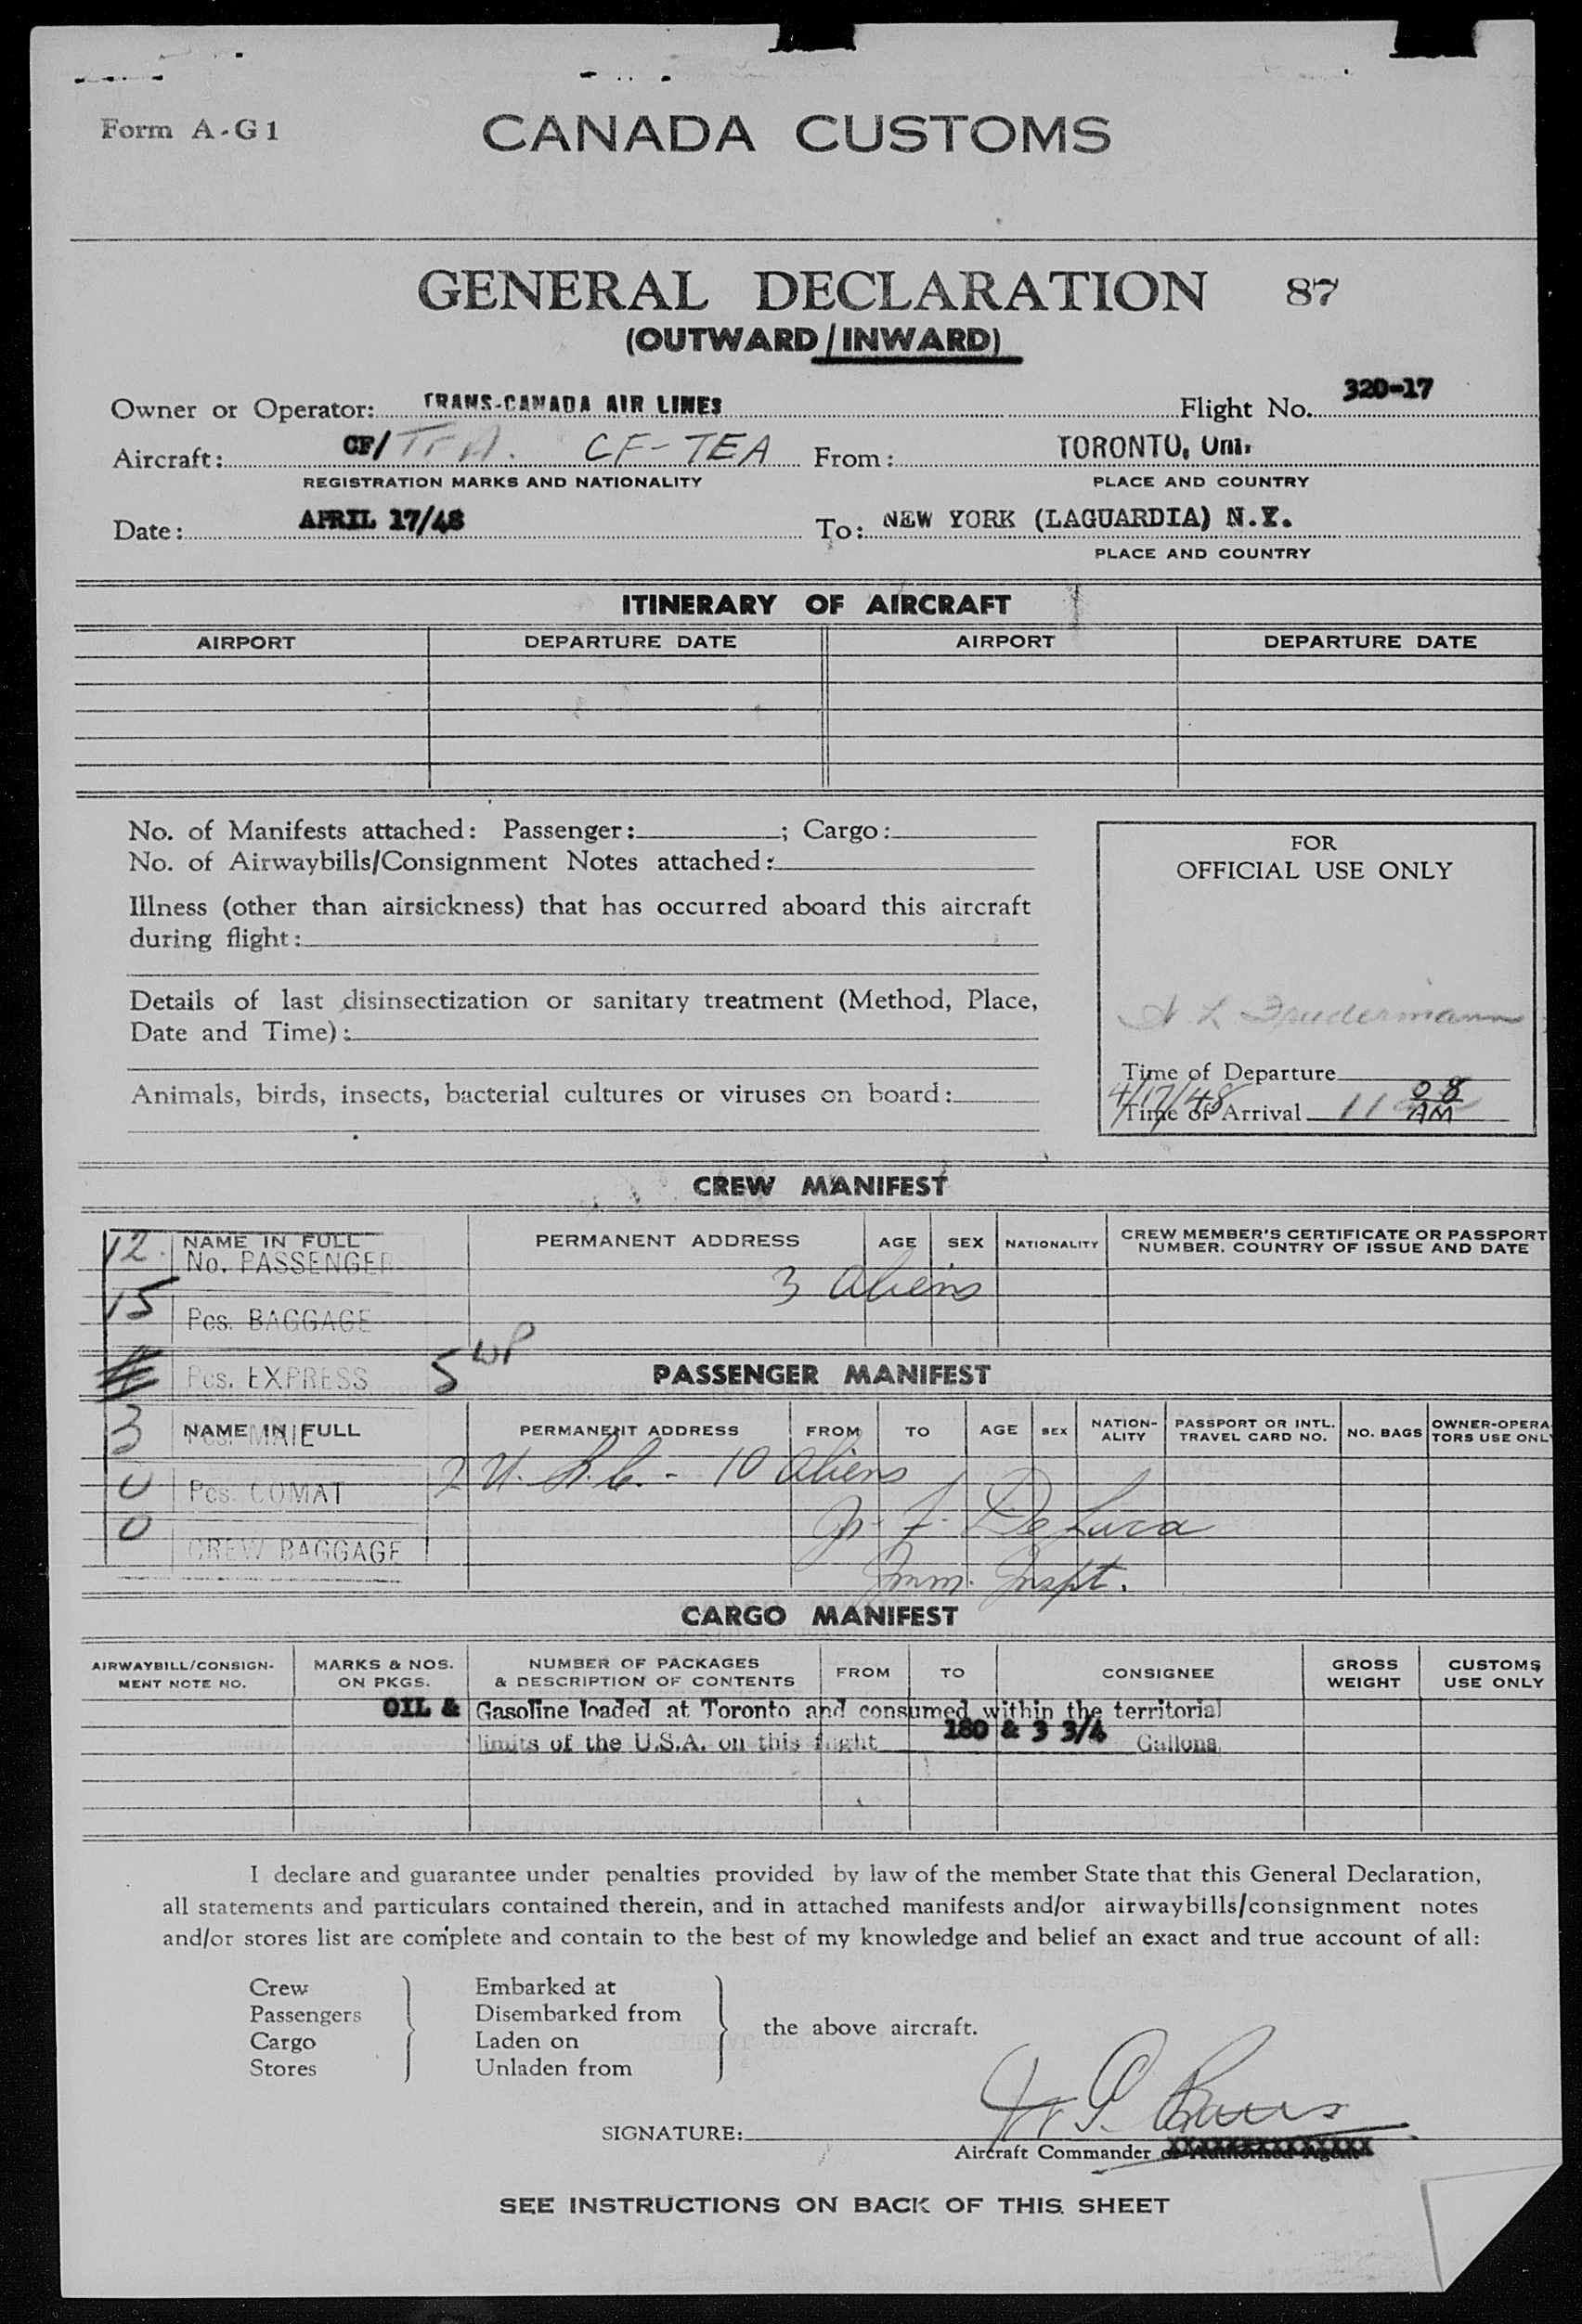 Form A-G1
CANADA CUSTOMS
GENERAL DECLARATION 87
(OUTWARD/INWARD)
Owner or Operator: TRANS-CANADA AIR LINES Flight No. 320-17
Aircraft: CF/TEA. CF-TEA From: TORONTO, Ont.
REGISTRATION MARKS AND NATIONALITY PLACE AND COUNTRY
Date: APRIL 17/48 To: NEW YORK (LAGUARDIA) N.Y.
PLACE AND COUNTRY
ITINERARY OF AIRCRAFT
AIRPORT DEPARTURE DATE AIRPORT DEPARTURE DATE
No. of Manifests attached: Passenger: ; Cargo:
No. of Airwaybills/Consignment Notes attached:
Illness (other than airsickness) that has occurred aboard this aircraft
during flight:
Details of last disinsectization or sanitary treatment (Method, Place,
Date and Time):
Animals, birds, insects, bacterial cultures or viruses on board:
FOR
OFFICIAL USE ONLY
Time of Departure
4/17/48
Time of Arrival 11 08 AM
CREW MANIFEST
NAME IN FULL PERMANENT ADDRESS AGE SEX NATIONALITY CREW MEMBER'S CERTIFICATE OR PASSPORT
NUMBER. COUNTRY OF ISSUE AND DATE
12. No. PASSENGER
3 aliens
15 Pcs. BAGGAGE
Pcs. EXPRESS 5 WP
PASSENGER MANIFEST
NAME IN FULL PERMANENT ADDRESS FROM TO AGE SEX NATION-
ALITY PASSPORT OR INTL.
TRAVEL CARD NO. NO. BAGS OWNER-OPERA
TORS USE ONLY
3 Pcs. MAIL
2 U.S.C. - 10 aliens
0 Pcs. COMAT
De Luca
0 CREW BAGGAGE
Imm. Inspt.
CARGO MANIFEST
AIRWAYBILL/CONSIGN-
MENT NOTE NO. MARKS & NOS.
ON PKGS. NUMBER OF PACKAGES
& DESCRIPTION OF CONTENTS FROM TO CONSIGNEE GROSS
WEIGHT CUSTOMS
USE ONLY
OIL & Gasoline loaded at Toronto and consumed within the territorial
limits of the U.S.A. on this flight 180 & 3 3/4 Gallons
I declare and guarantee under penalties provided by law of the member State that this General Declaration,
all statements and particulars contained therein, and in attached manifests and/or airwaybills/consignment notes
and/or stores list are complete and contain to the best of my knowledge and belief an exact and true account of all:
Crew Embarked at
Passengers Disembarked from
the above aircraft.
Cargo Laden on
Stores Unladen from
SIGNATURE:
Aircraft Commander or Authorised Agent
SEE INSTRUCTIONS ON BACK OF THIS SHEET